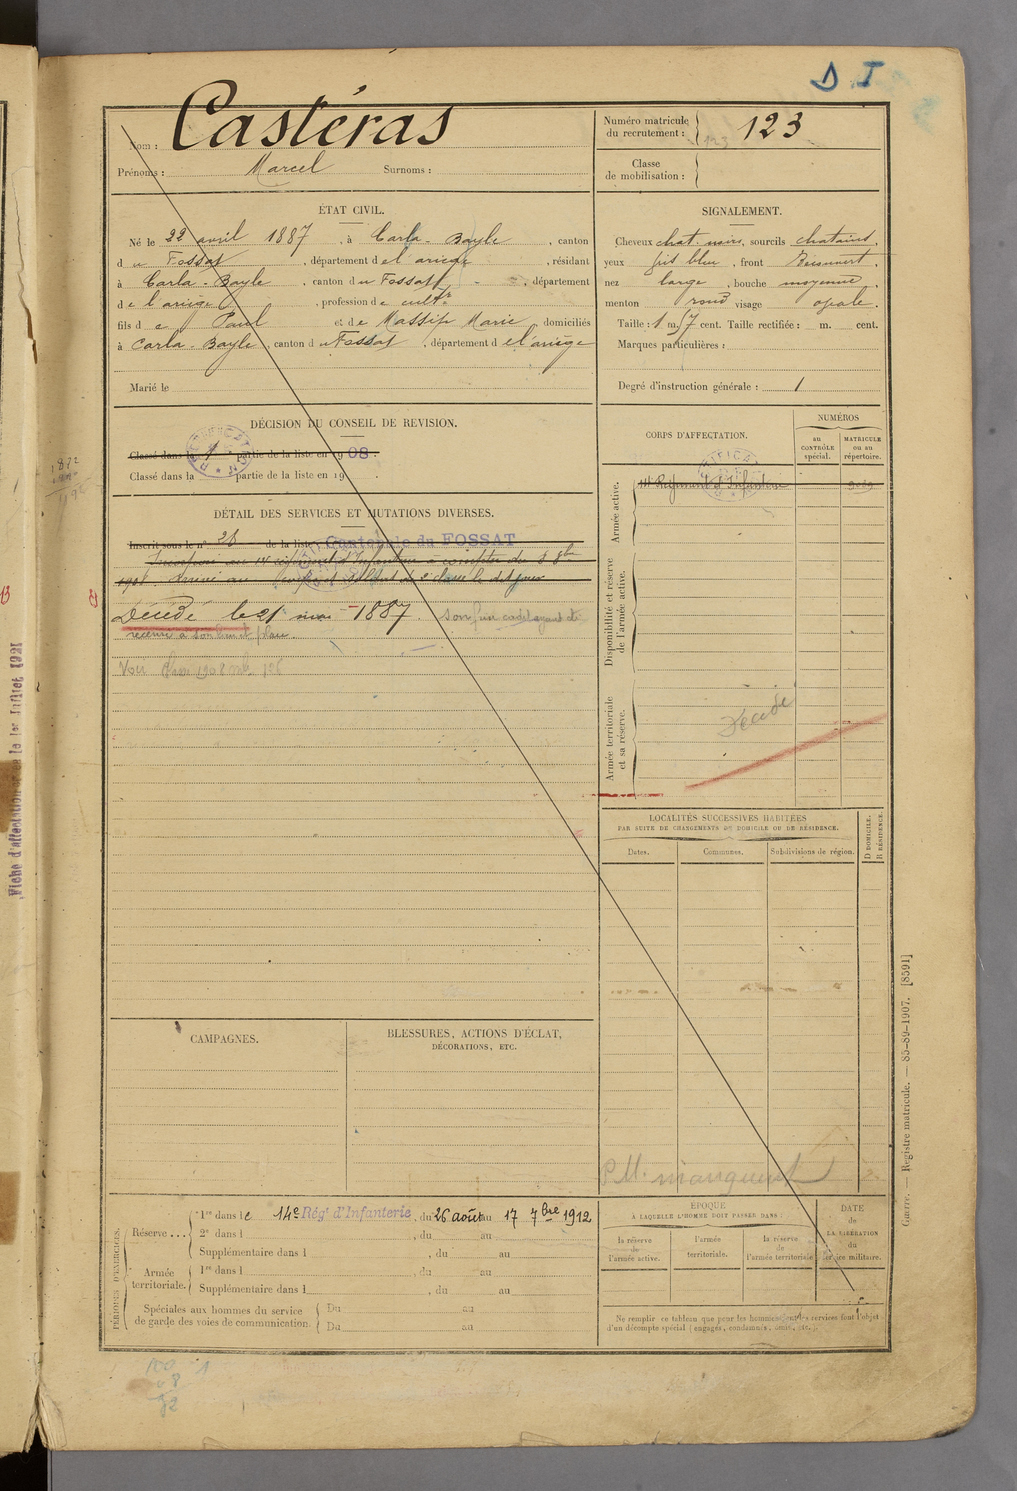 D I
Nom : Castéras
Prénoms : Marcel Surnoms :
Numéro matricule du recrutement : 123
Classe de mobilisation :
ÉTAT CIVIL.
Né le 22 avril 1887, à Carla-Bayle, canton
du Fossat, département de l'ariège, résidant
à Carla-Bayle, canton du Fossat, département
de l'ariège, profession de cultr
fils de Paul et de Massip Marie, domiciliés
à Carla-Bayle, canton du Fossat, département de l'ariège
Marié le
SIGNALEMENT.
Cheveux chat. noirs, sourcils chatains.
yeux gris bleu, front Découvert.
nez large, bouche moyenne.
menton rond visage ovale.
Taille : 1 m. 57 cent. Taille rectifiée : m. cent.
Marques particulières :
Degré d'instruction générale : 1
DÉCISION DU CONSEIL DE REVISION.
Classé dans la 1 partie de la liste en 1908.
Classé dans la partie de la liste en 19 .
DÉTAIL DES SERVICES ET MUTATIONS DIVERSES.
Inscrit sous le n° 28 de la liste Cantonale du FOSSAT
Incorporé au 14 régiment d'Infanterie à compter du 8 8bre
1908. Arrivé au corps et soldat de 2e classe le dit jour
Décédé le 21 mai 1887.
Voir Classe 1908 mle 126
CORPS D'AFFECTATION.
NUMÉROS
au CONTRÔLE spécial.
MATRICULE ou au répertoire.
Armée active.
14e Régiment d'Infanterie
Disponibilité et réserve de l'armée active.
Armée territoriale et sa réserve.
Décédé
LOCALITÉS SUCCESSIVES HABITÉES
PAR SUITE DE CHANGEMENTS DE DOMICILE OU DE RÉSIDENCE.
Dates. Communes. Subdivisions de région.
D DOMICILE. R RÉSIDENCE.
CAMPAGNES.
BLESSURES, ACTIONS D'ÉCLAT,
DÉCORATIONS, ETC.
P M. manquent
PÉRIODES D'EXERCICES.
Réserve ... 1re dans le 14e Régt d'Infanterie, du 26 août au 17 7bre 1912
2e dans l , du au
Supplémentaire dans l , du au
Armée territoriale. 1re dans l , du au
Supplémentaire dans l , du au
Spéciales aux hommes du service
de garde des voies de communication.
Du au
Du au
ÉPOQUE
À LAQUELLE L'HOMME DOIT PASSER DANS :
la réserve de l'armée active.
l'armée territoriale.
la réserve de l'armée territoriale
DATE de LA LIBÉRATION du service militaire.
Ne remplir ce tableau que pour les hommes dont les services font l'objet
d'un décompte spécial (engagés, condamnés, omis, etc.).
Guerre. — Registre matricule. — 85-89-1907. [8591]
Fiche d'affectation créée le 1er Juillet 1921